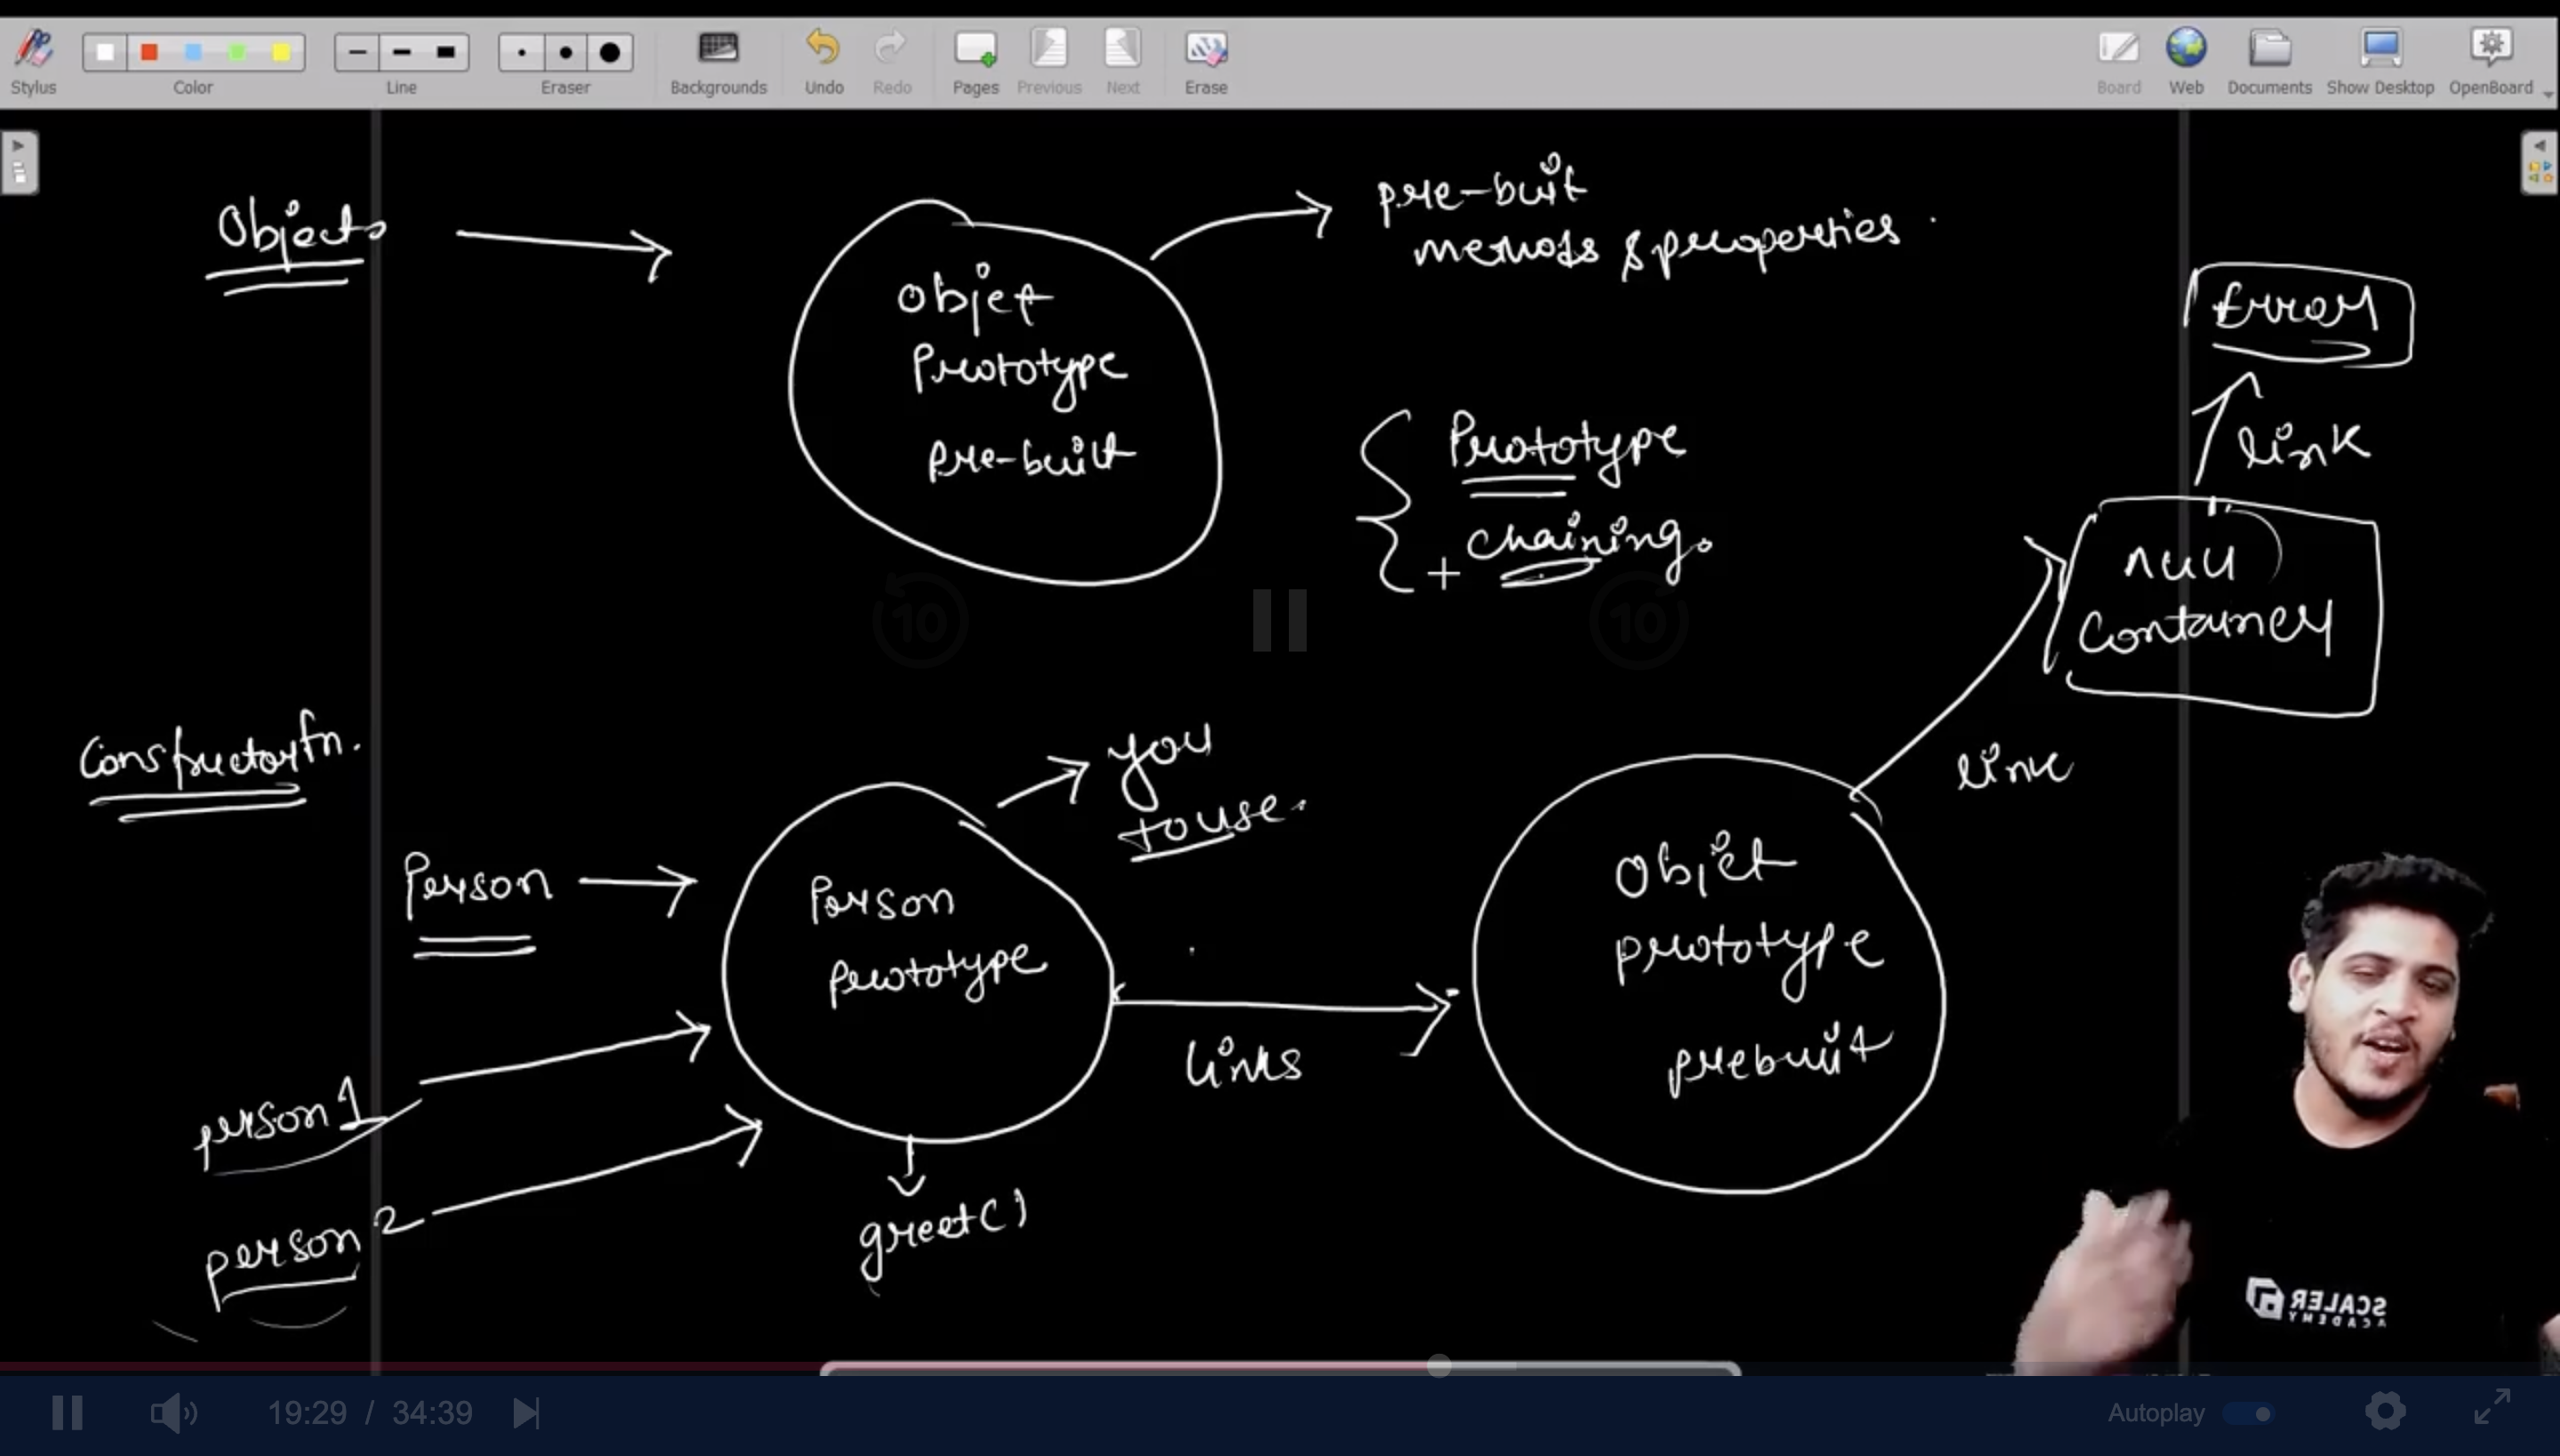 Stylus
Color
Line
Eraser
Backgrounds
Undo
Redo
Pages
Previous
Next
Erase
Board
Web
Documents
Show Desktop
OpenBoard
Objects
Objet
Prototype
pre-built
pre-buit
methods & properties.
Prototype
+ chaining.
Error
link
null
Container
link
10
10
Constructor fn.
Person
person 1
person 2
Person
Prototype
you
to use.
greet()
links
Objet
prototype
prebuit
SCALER
ACADEMY
19:29 / 34:39
Autoplay